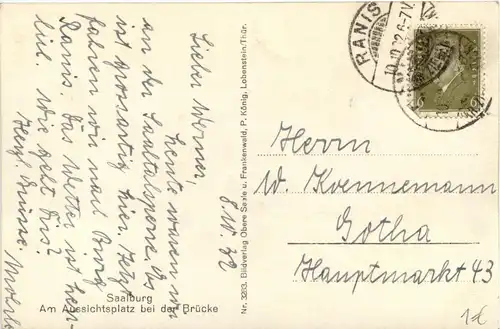 8. IV. 32
Lieber Werner,
heute waren wir
an der Saaltalsperre. Es
ist grossartig hier. Jetzt
fahren wir nach Burg
Ranis. Das Wetter ist herr-
lich. Wie geht Dirs?
Herzl. Grüsse,
Saalburg
Am Aussichtsplatz bei der Brücke
Nr. 3203. Bildverlag Obere Saale u. Frankenwald, P. König, Lobenstein/Thür.
RANIS
10.10.32.6-7V.
6
Herrn
W. Konnemann
Gotha
Hauptmarkt 43
1€